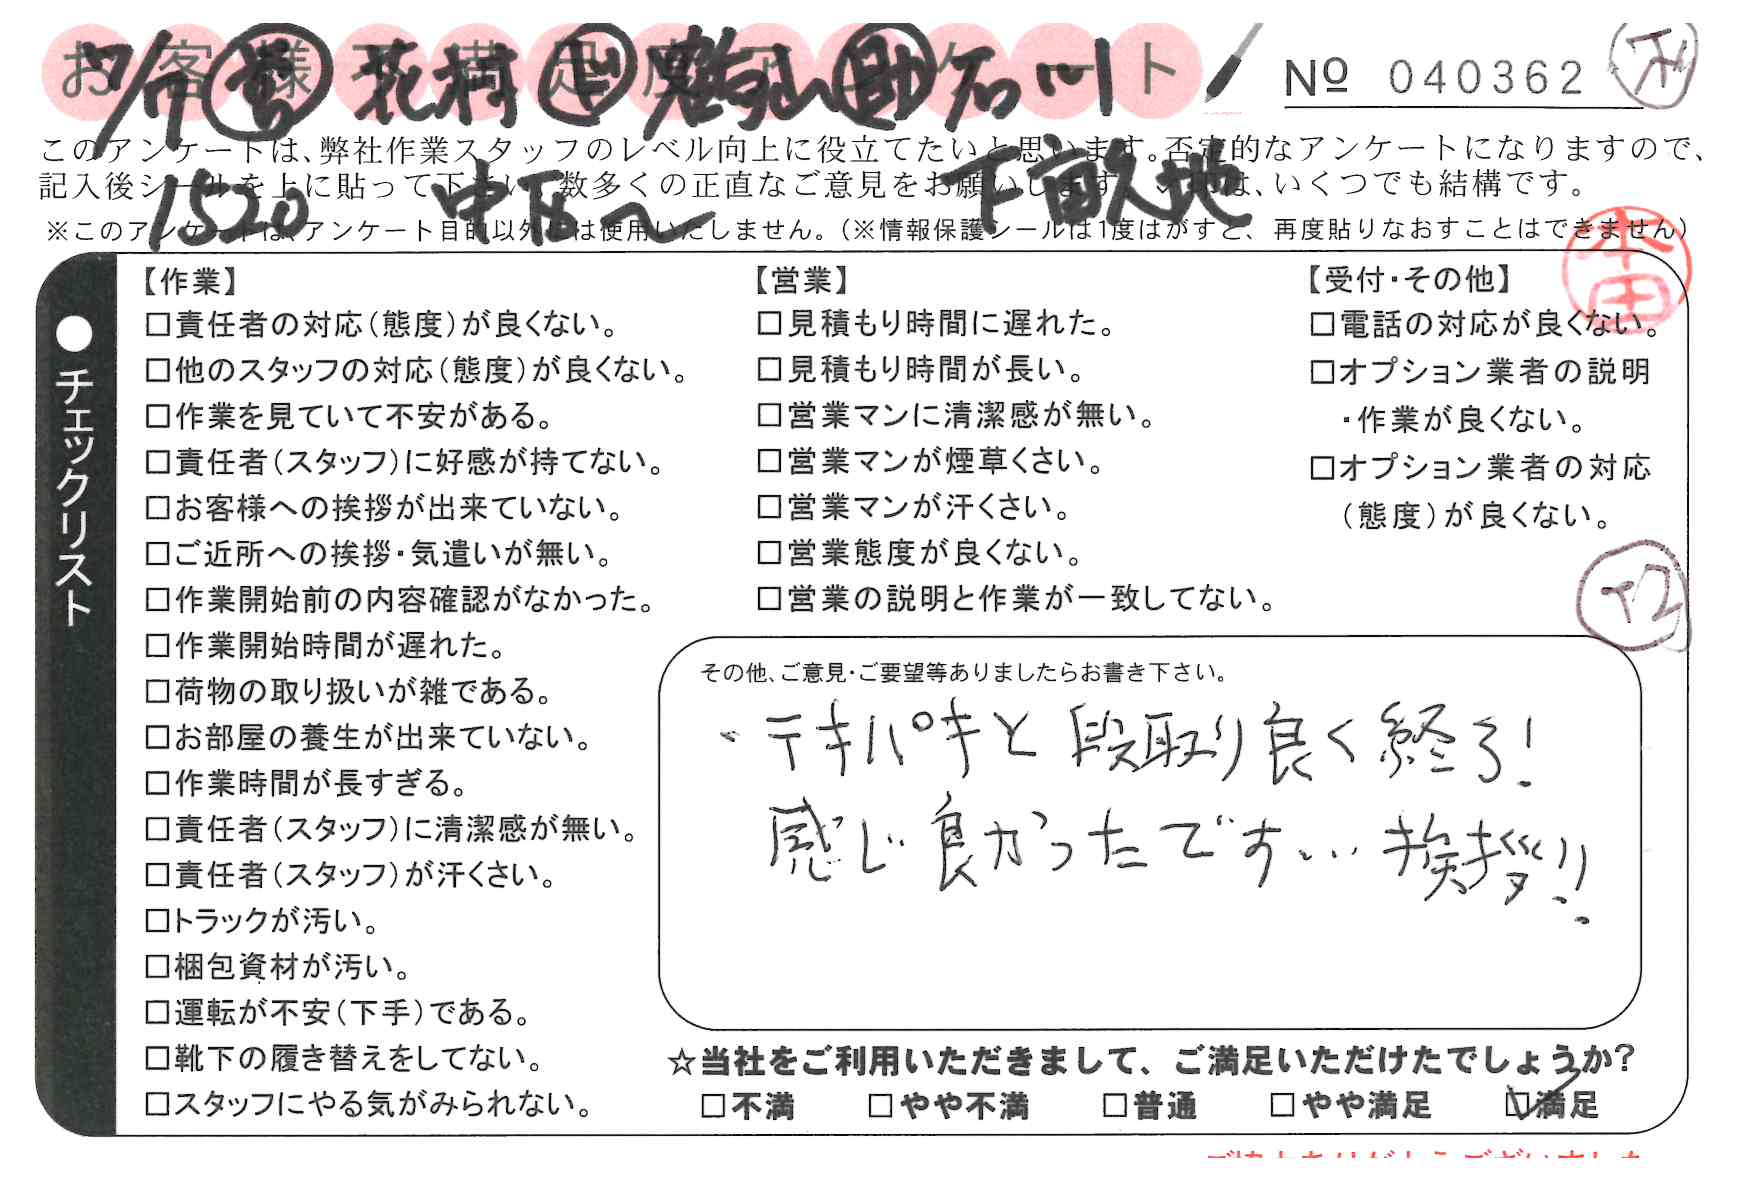 お客様不満足度アンケート
Nº 040362
7/9 営 花村 ㊤ 鶴山 助 石川
このアンケートは、弊社作業スタッフのレベル向上に役立てたいと思います。否定的なアンケートになりますので、
記入後シールを上に貼って下さい。数多くの正直なご意見をお願いします。✓印は、いくつでも結構です。
1520
※このアンケートは、アンケート目的以外には使用いたしません。(※情報保護シールは1度はがすと、再度貼りなおすことはできません)
本田
●チェックリスト
【作業】
□責任者の対応(態度)が良くない。
□他のスタッフの対応(態度)が良くない。
□作業を見ていて不安がある。
□責任者(スタッフ)に好感が持てない。
□お客様への挨拶が出来ていない。
□ご近所への挨拶・気遣いが無い。
□作業開始前の内容確認がなかった。
□作業開始時間が遅れた。
□荷物の取り扱いが雑である。
□お部屋の養生が出来ていない。
□作業時間が長すぎる。
□責任者(スタッフ)に清潔感が無い。
□責任者(スタッフ)が汗くさい。
□トラックが汚い。
□梱包資材が汚い。
□運転が不安(下手)である。
□靴下の履き替えをしてない。
□スタッフにやる気がみられない。
【営業】
□見積もり時間に遅れた。
□見積もり時間が長い。
□営業マンに清潔感が無い。
□営業マンが煙草くさい。
□営業マンが汗くさい。
□営業態度が良くない。
□営業の説明と作業が一致してない。
【受付・その他】
□電話の対応が良くない。
□オプション業者の説明
・作業が良くない。
□オプション業者の対応
(態度)が良くない。
その他、ご意見・ご要望等ありましたらお書き下さい。
・テキパキと段取り良く終了!
感じ良かったです… 挨拶!!
☆当社をご利用いただきまして、ご満足いただけたでしょうか?
□不満 □やや不満 □普通 □やや満足 ☑満足
ご協力ありがとうございました